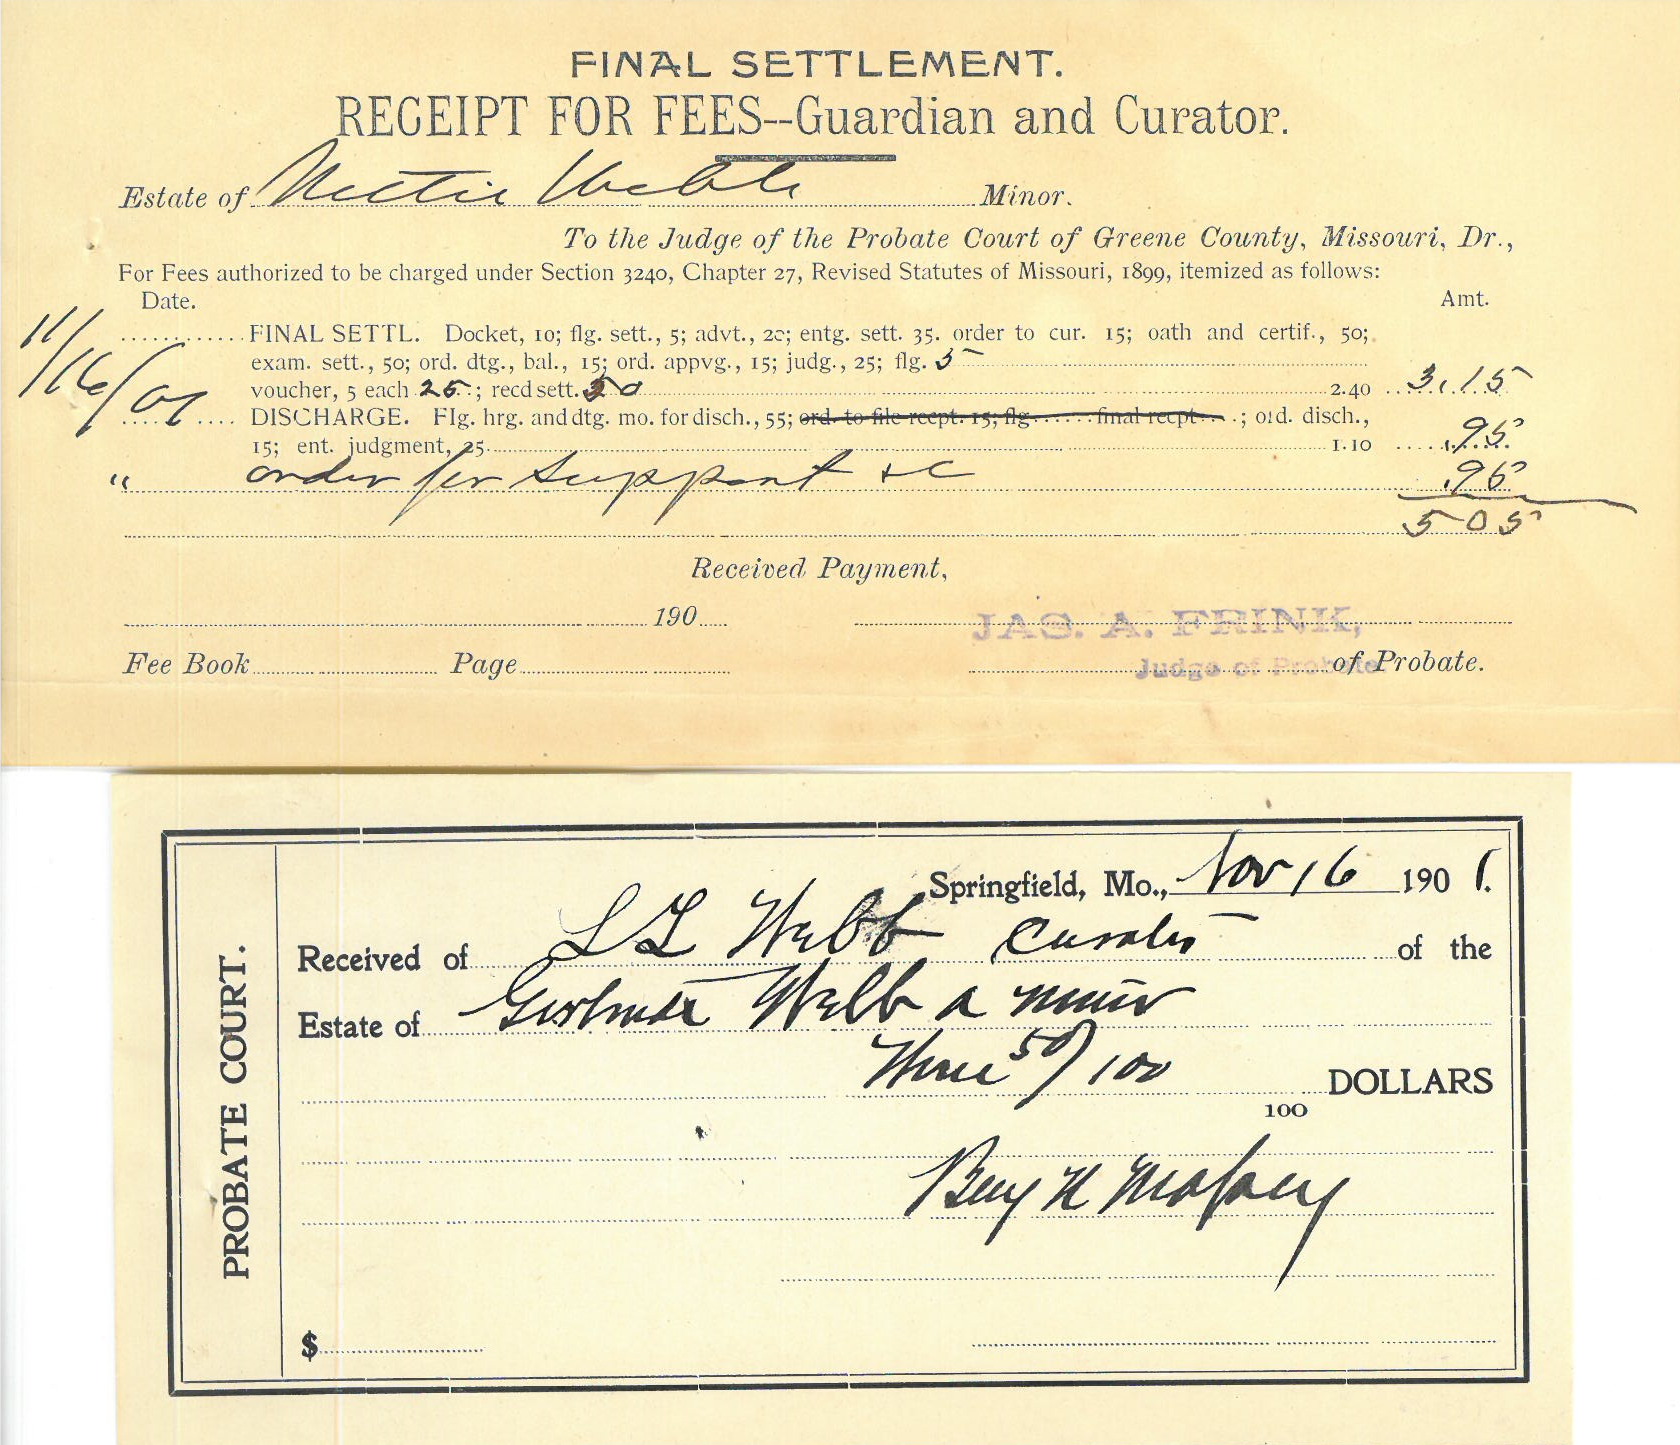 FINAL SETTLEMENT.
RECEIPT FOR FEES--Guardian and Curator.
Estate of Nettie Webb Minor.
To the Judge of the Probate Court of Greene County, Missouri, Dr.,
For Fees authorized to be charged under Section 3240, Chapter 27, Revised Statutes of Missouri, 1899, itemized as follows:
Date. Amt.
11/16/01 FINAL SETTL. Docket, 10; flg. sett., 5; advt., 20; entg. sett. 35. order to cur. 15; oath and certif., 50;
exam. sett., 50; ord. dtg., bal., 15; ord. appvg., 15; judg., 25; flg. 5
voucher, 5 each 25; recd sett. 50 2.40 3.15
DISCHARGE. Flg. hrg. and dtg. mo. for disch., 55; ord. to file recpt. 15; flg. final recpt.; ord. disch.,
15; ent. judgment, 25 1.10 .95
" order for support &c .95
5 05
Received Payment,
190
JAS. A. FRINK,
Fee Book Page of Probate.
Judge of Probate
PROBATE COURT.
Springfield, Mo., Nov 16 1901.
Received of L L Webb Curator of the
Estate of Gertrude Webb a minor
Three 50/100 DOLLARS
100
Benj N Massey
$